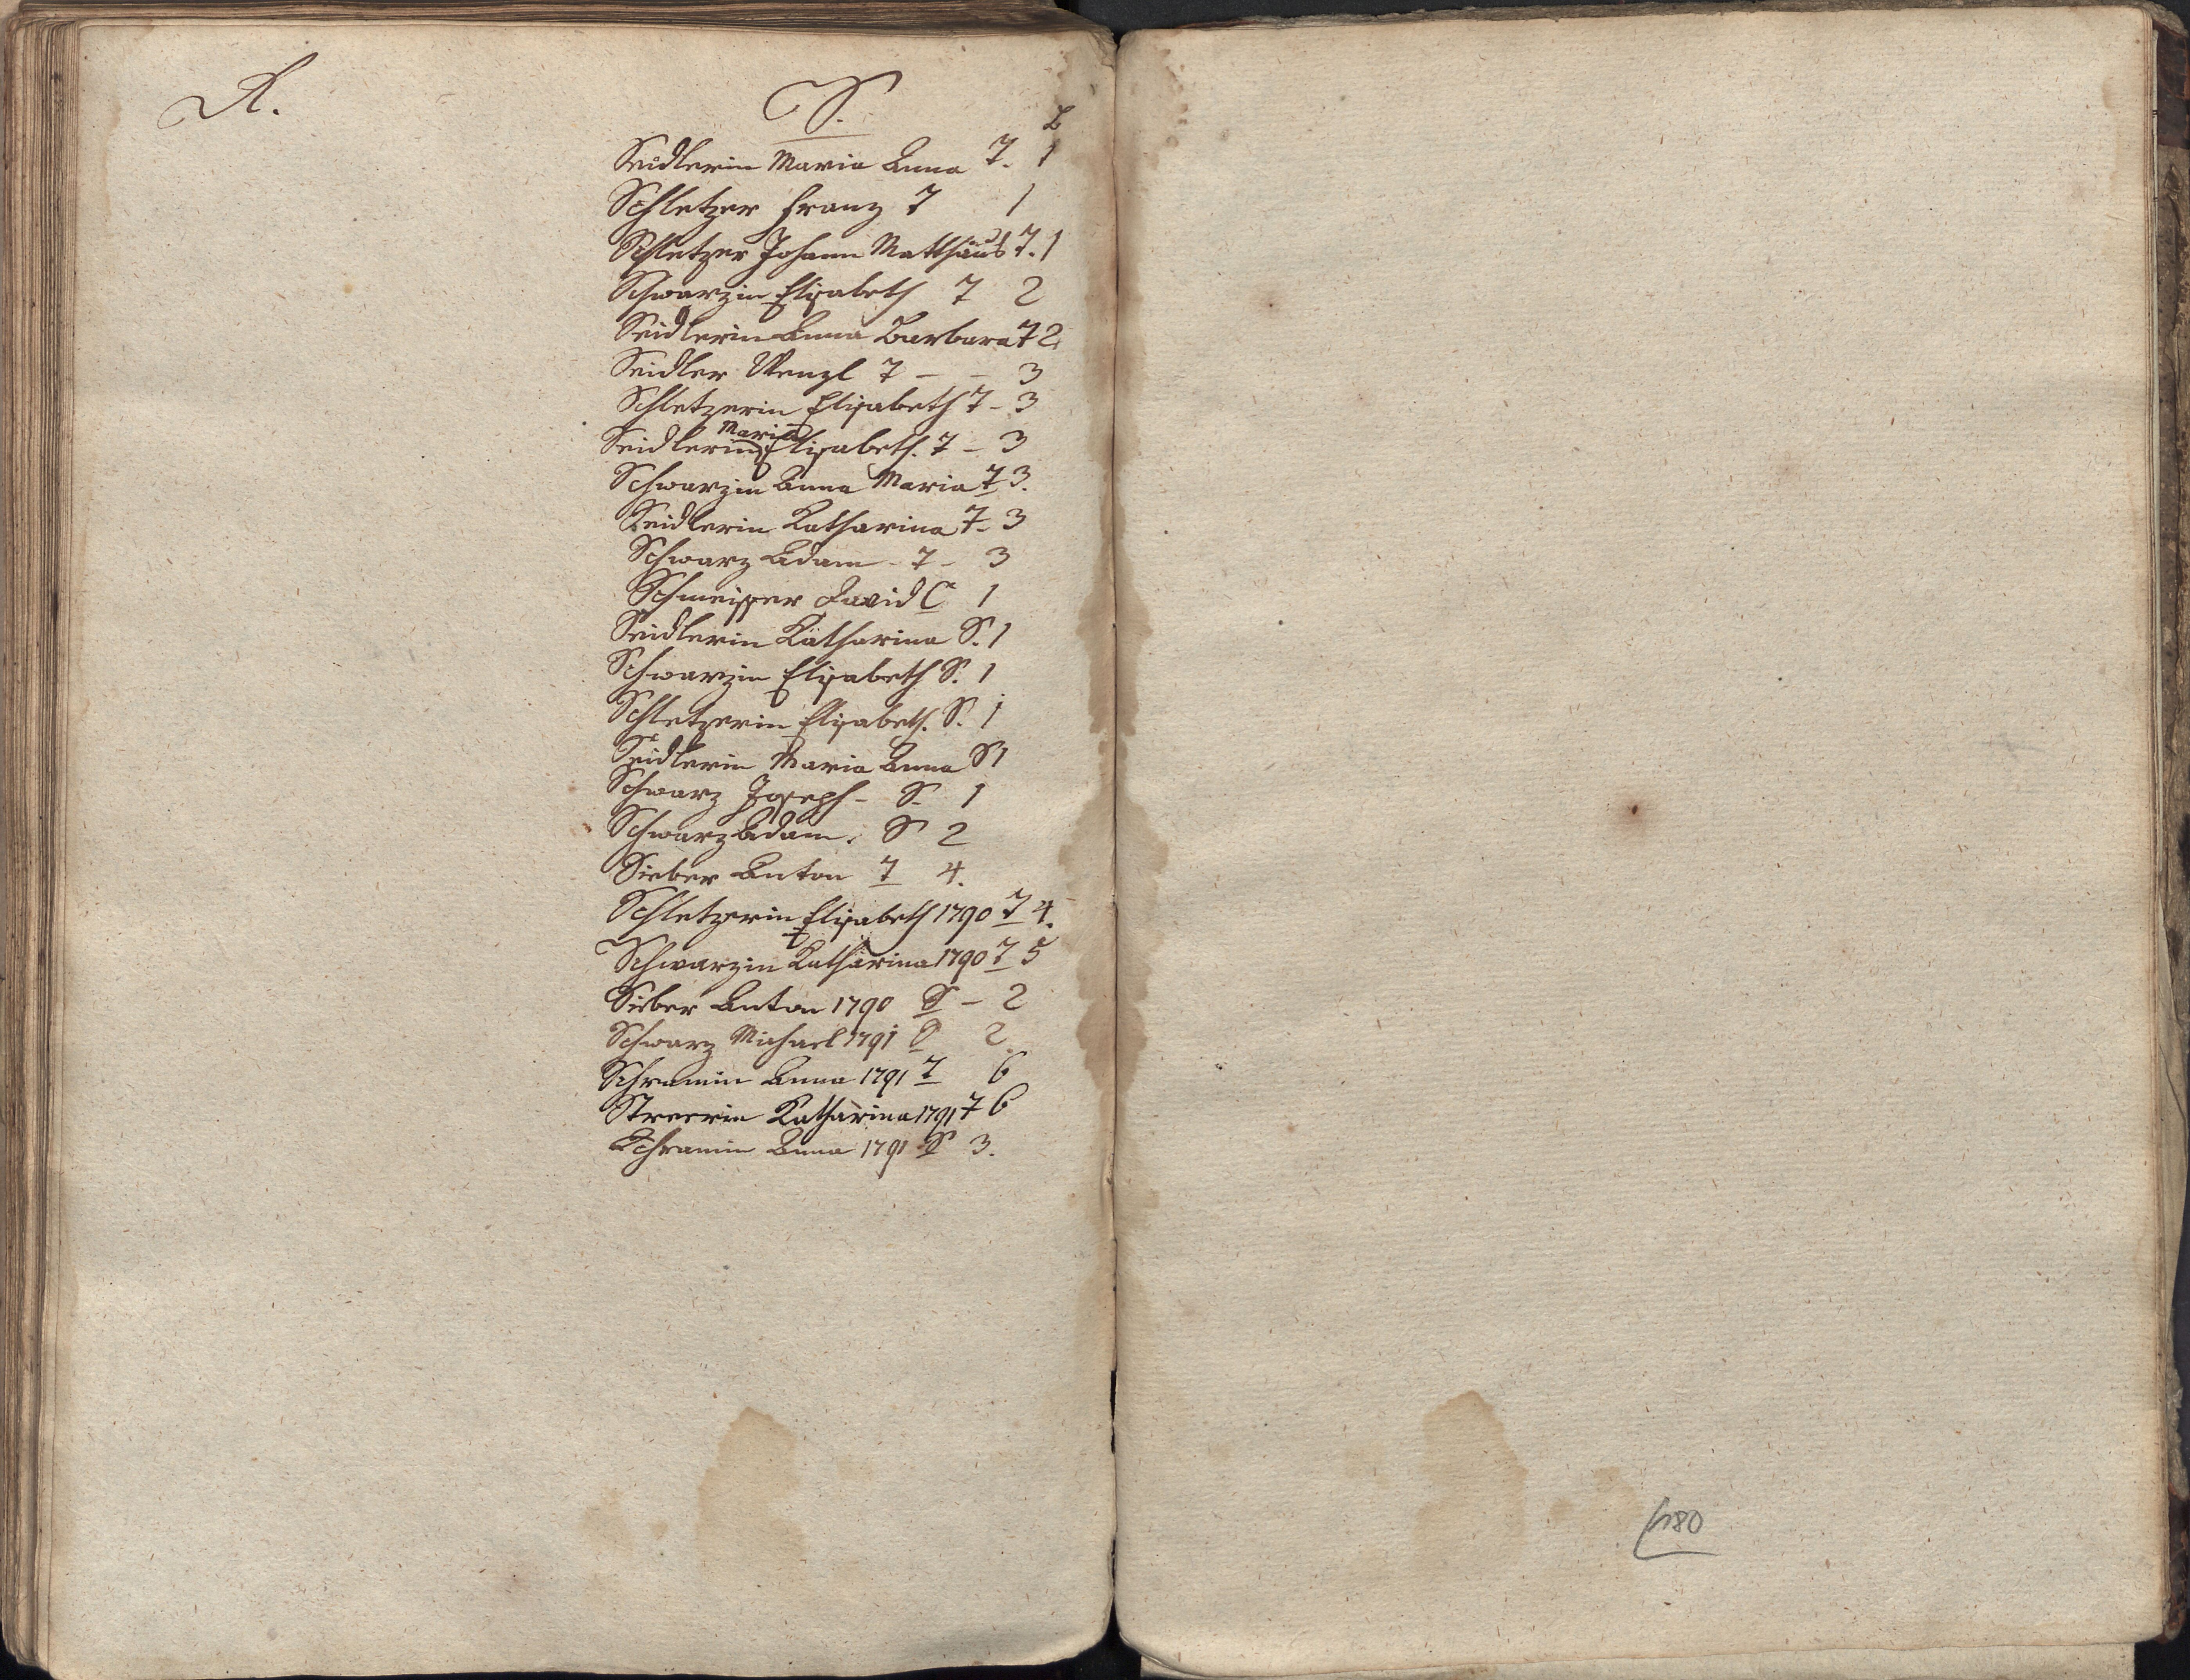 R.
S.
L
Seidlerin Maria Anna T. 1
Schletzer Franz T 1
Schletzer Johann Matthäus T. 1
Schwarzin Elisabeth T 2
Seidlerin Anna Barbara T 2
Seidler Wenzl T - - 3
Schletzerin Elisabeth T - 3
Seidlerin Maria Elisabeth. T - 3
Schwarzin Anna Maria T 3.
Seidlerin Katharina T - 3
Schwarz Adam - T - 3
Schmeisser David C 1
Seidlerin Katharina S. 1
Schwarzin Elisabeth S. 1
Schletzerin Elisabeth. S. 1
Seidlerin Maria Anna S 1
Schwarz Joseph - S. 1
Schwarz Adam. S 2
Sieber Anton T 4.
Schletzerin Elisabeth 1790 T 4.
Schwarzin Katharina 1790 T 5
Sieber Anton 1790 S - 2
Schwarz Michael 1791 S 2.
Schramin Anna 1791 T 6
Streerin Katharina 1791 T 6
Schramin Anna 1791 S 3.
180